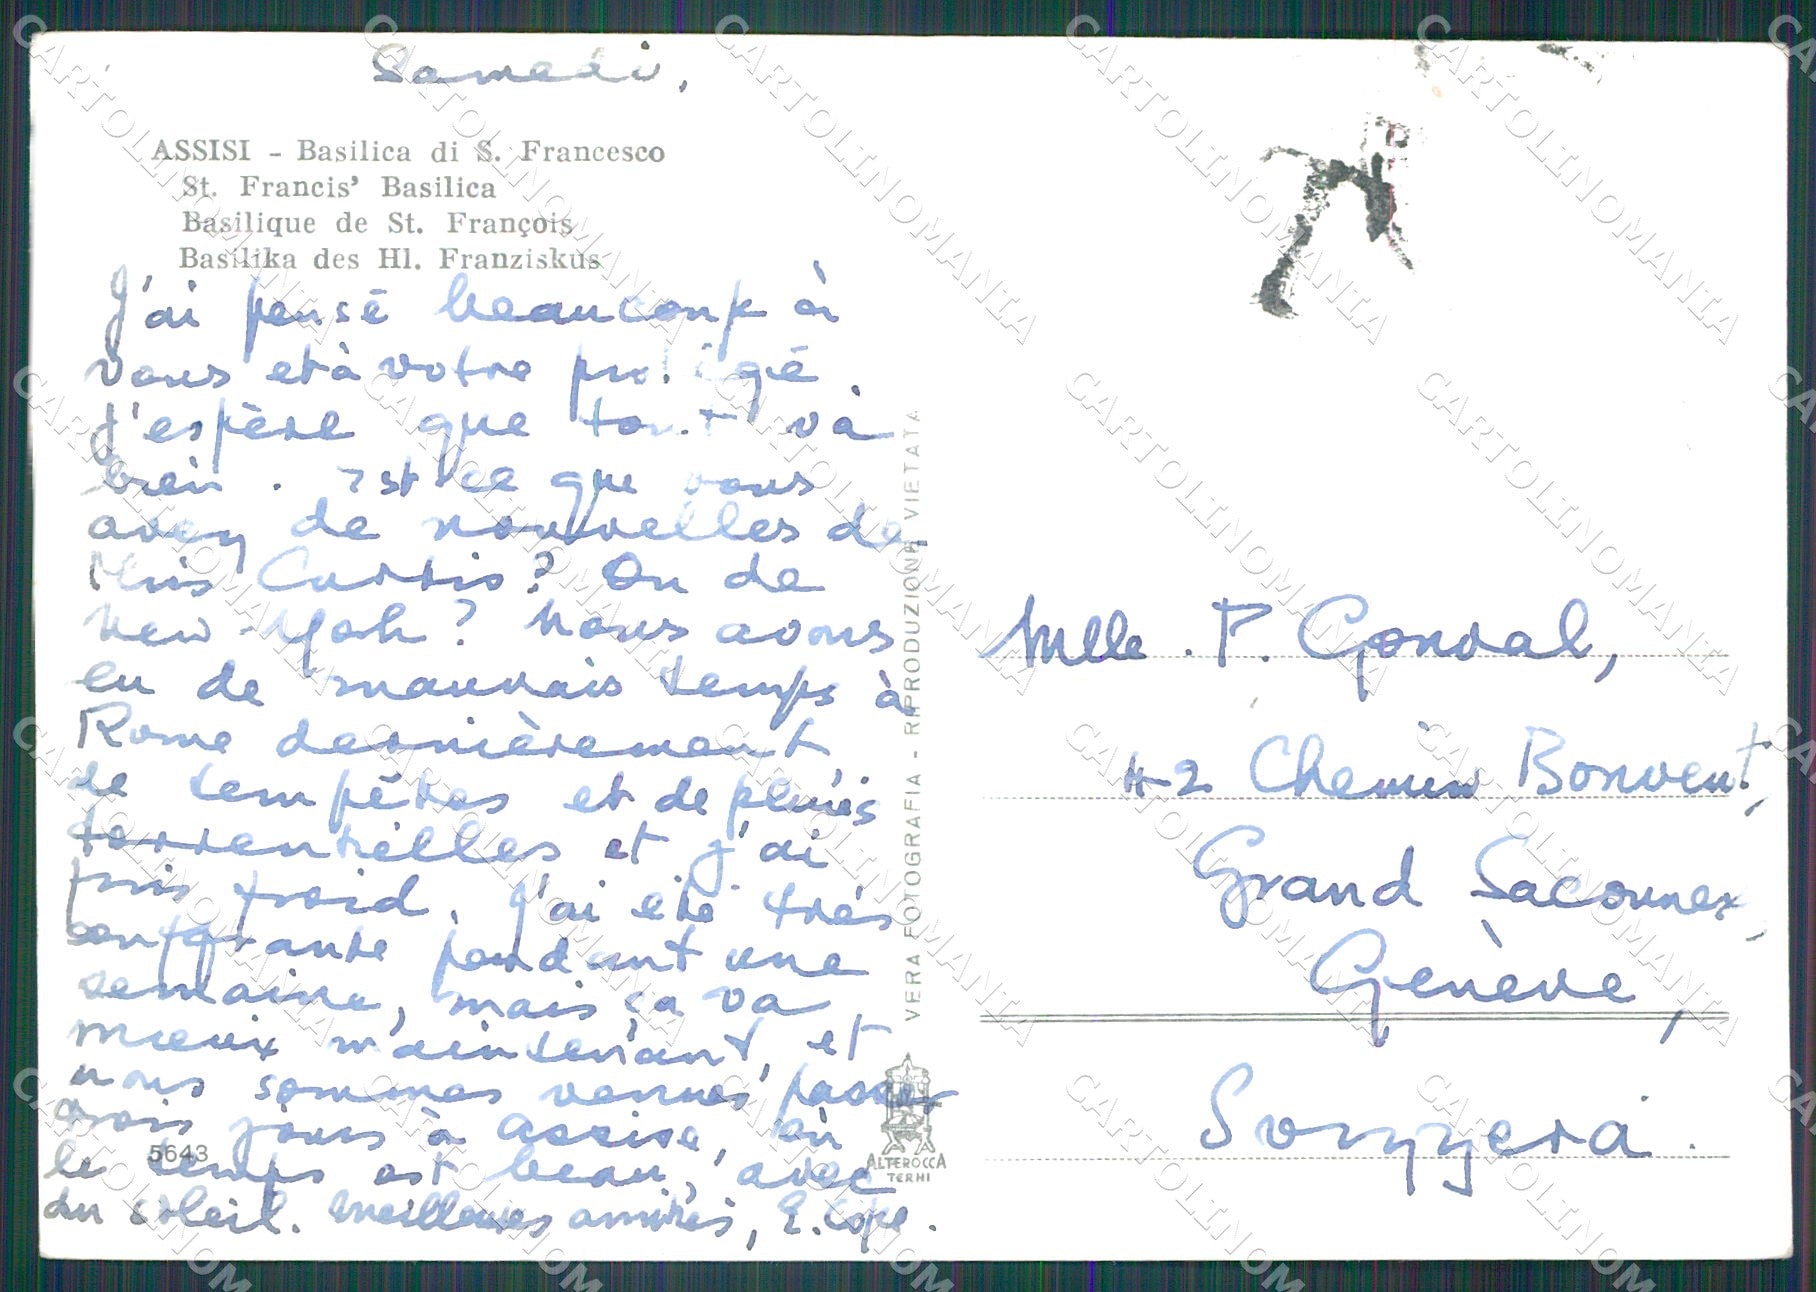 Samedi,
ASSISI - Basilica di S. Francesco
St. Francis' Basilica
Basilique de St. François
Basilika des Hl. Franziskus
J'ai pensé beaucoup à
vous et à votre protégé.
J'espère que tout va
bien. Est ce que vous
avez de nouvelles de
Miss Curtis? Ou de
New-York? Nous avons
eu de mauvais temps à
Rome dernièrement
de tempêtes et de pluies
torrentielles et j'ai
pris froid. J'ai été très
souffrante pendant une
semaine, mais ça va
mieux maintenant, et
nous sommes venus passer
trois jours à Assise, où
le temps est beau, avec
du soleil. Meilleures amitiés, E. Cope.
5643
VERA FOTOGRAFIA - RIPRODUZIONE VIETATA
ALTEROCCA
TERNI
Mlle. P. Gonval,
42 Chemin Bonvent,
Grand Saconnex,
Genève,
Svizzera.
CARTOLINOMANIA